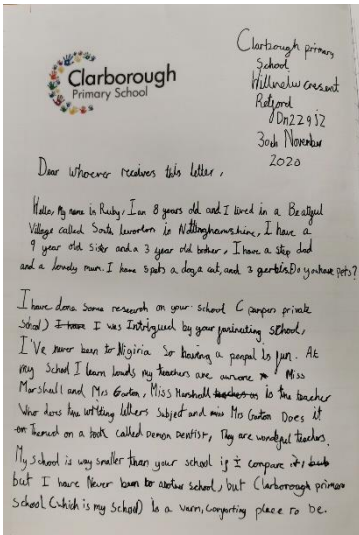 Clarborough
Primary School
Clarbrough primary
School
Hillview cresent
Retford
Dn22 9JZ
30th November
2020
Dear whoever receives this letter,
Hello, My name is Ruby, I am 8 years old and I lived in a Beatiful
Village called South leverton in Nottinghamshire, I have a
9 year old sister and a 3 year old brother, I have a step dad
and a lovely mum. I have 5 pets a dog, a cat, and 3 gerbils. Do you have pets?
I have done some research on your school (pampers private
School) I was Intrigued by your fasinating school,
I'VE never been to Nigiria So having a penpal is fun. At
my School I learn loads my teachers are awsome Miss
Marshall and Mrs Garton, Miss Marshall is the teacher
Who does the writting letters subject and Mrs Garton Does it
on Themed on a book called Demon Dentist, They are wonderful teachers.
My school is way smaller than your school if I compare it,
but I have Never been to another school, but Clarborough primary
school (which is my school) is a warm, comforting place to be.